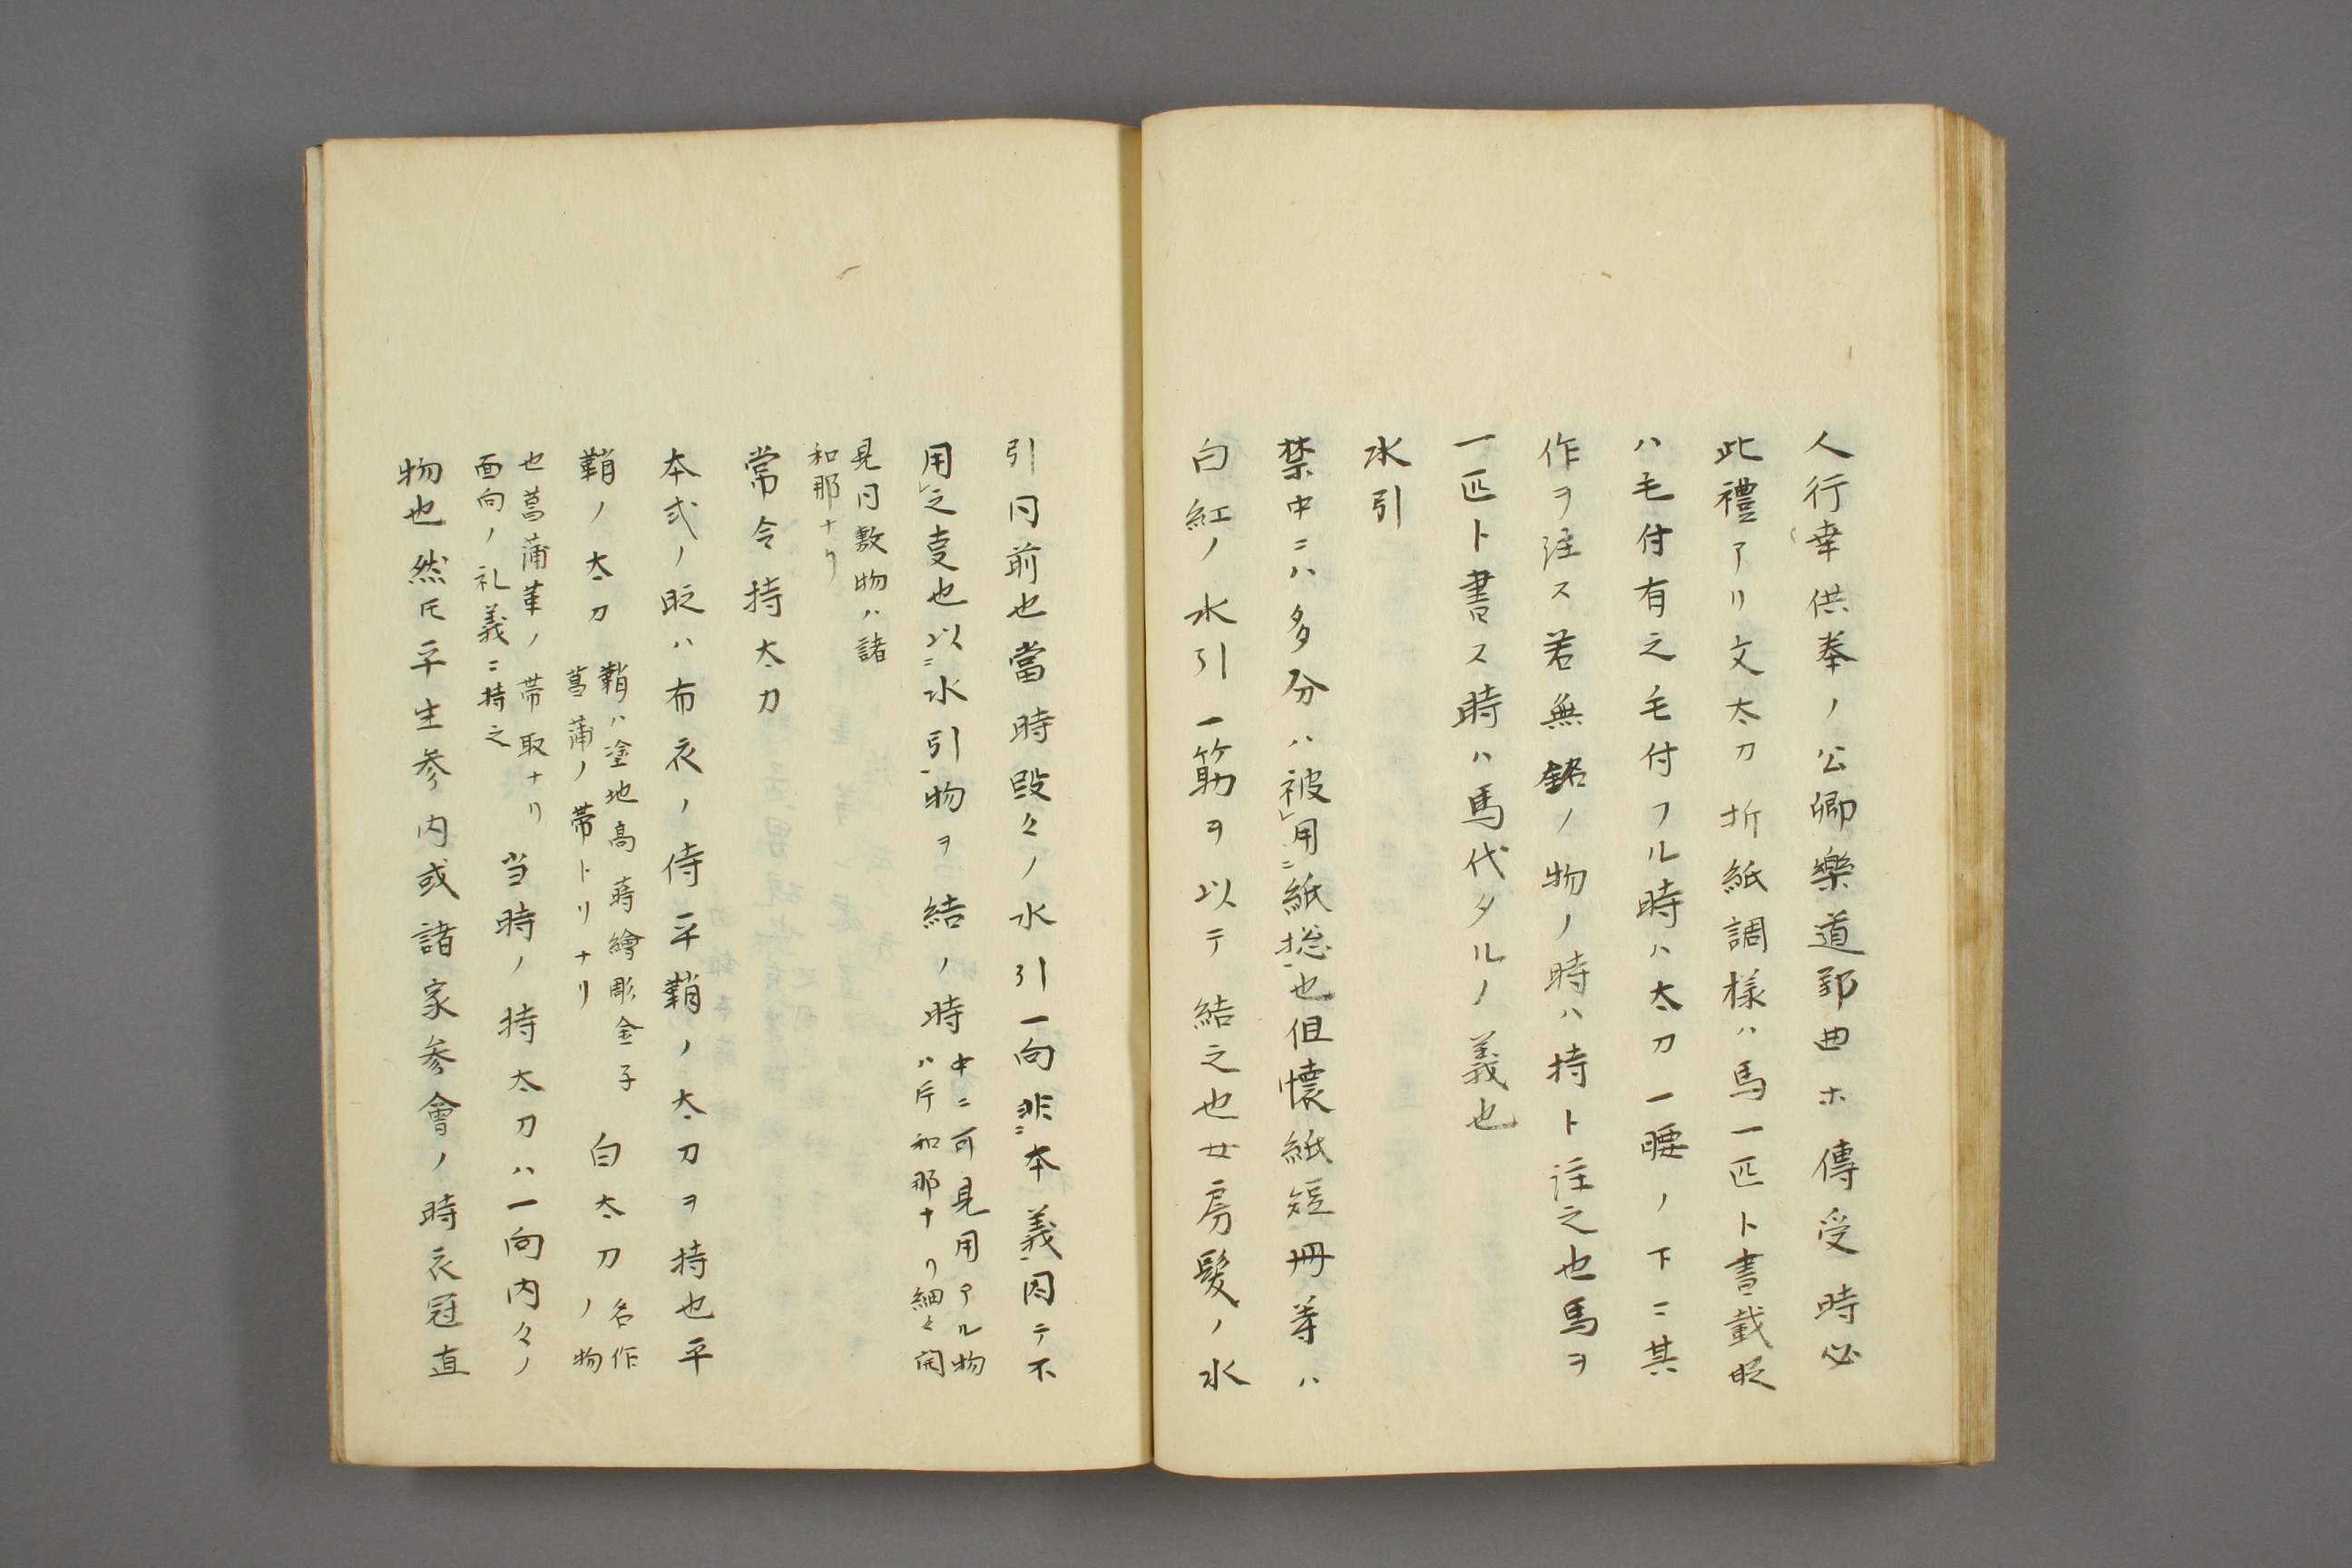 人行幸供奉ノ公卿樂道郢曲ホ傳受時必
此禮アリ文太刀折紙調様ハ馬一匹ト書載眨
ハ毛付有之毛付フル時ハ太刀一腰ノ下ニ其
作ヲ注ス若無銘ノ物ノ時ハ持ト注之也馬ヲ
一匹ト書ス時ハ馬代タルノ義也
水引
禁中ニハ多分ハ被レ用ニ紙捻一也但懐紙短冊等ハ
白紅ノ水引一筋ヲ以テ結之也女房髪ノ水
引同前也當時段々ノ水引一向非ニ本義一因テ不
用レ之㕝也以ニ水引一物ヲ結ノ時
中ニ可見用アル物
ハ片和那ナリ細々開
見同敷物ハ諸
和那ナリ
常令持太刀
本式ノ眨ハ布衣ノ侍平鞘ノ太刀ヲ持也平
鞘ノ太刀
鞘ハ塗地高蒔繪彫金子
菖蒲ノ帯トリナリ
白太刀
名作
ノ物
也菖蒲革ノ帯取ナリ
面向ノ礼義ニ持之
当時ノ持太刀ハ一向内々ノ
物也然𪜈平生参内或諸家参會ノ時衣冠直